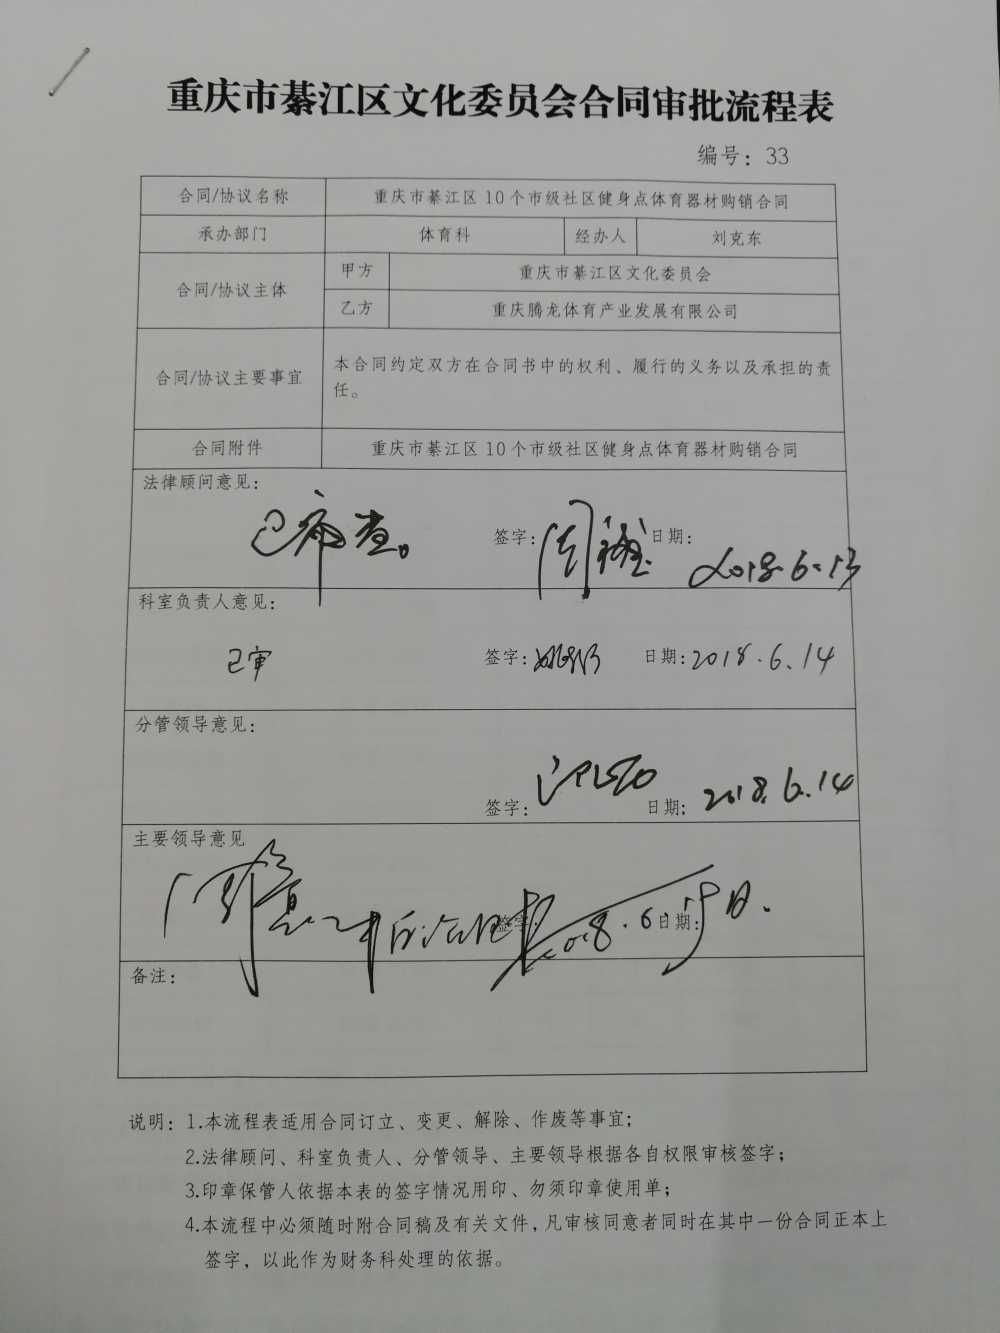 重庆市綦江区文化委员会合同审批流程表
编号：33
合同/协议名称 重庆市綦江区10个市级社区健身点体育器材购销合同
承办部门 体育科 经办人 刘克东
合同/协议主体 甲方 重庆市綦江区文化委员会
乙方 重庆腾龙体育产业发展有限公司
合同/协议主要事宜 本合同约定双方在合同书中的权利、履行的义务以及承担的责
任。
合同附件 重庆市綦江区10个市级社区健身点体育器材购销合同
法律顾问意见：
已审查。 签字： 日期： 2018.6.13
科室负责人意见：
已审 签字： 日期：2018.6.14
分管领导意见：
签字： 日期： 2018.6.14
主要领导意见
签字： 2018.6 日期： 日.
备注：
说明：1.本流程表适用合同订立、变更、解除、作废等事宜；
2.法律顾问、科室负责人、分管领导、主要领导根据各自权限审核签字；
3.印章保管人依据本表的签字情况用印、勿须印章使用单；
4.本流程中必须随时附合同稿及有关文件，凡审核同意者同时在其中一份合同正本上
签字，以此作为财务科处理的依据。